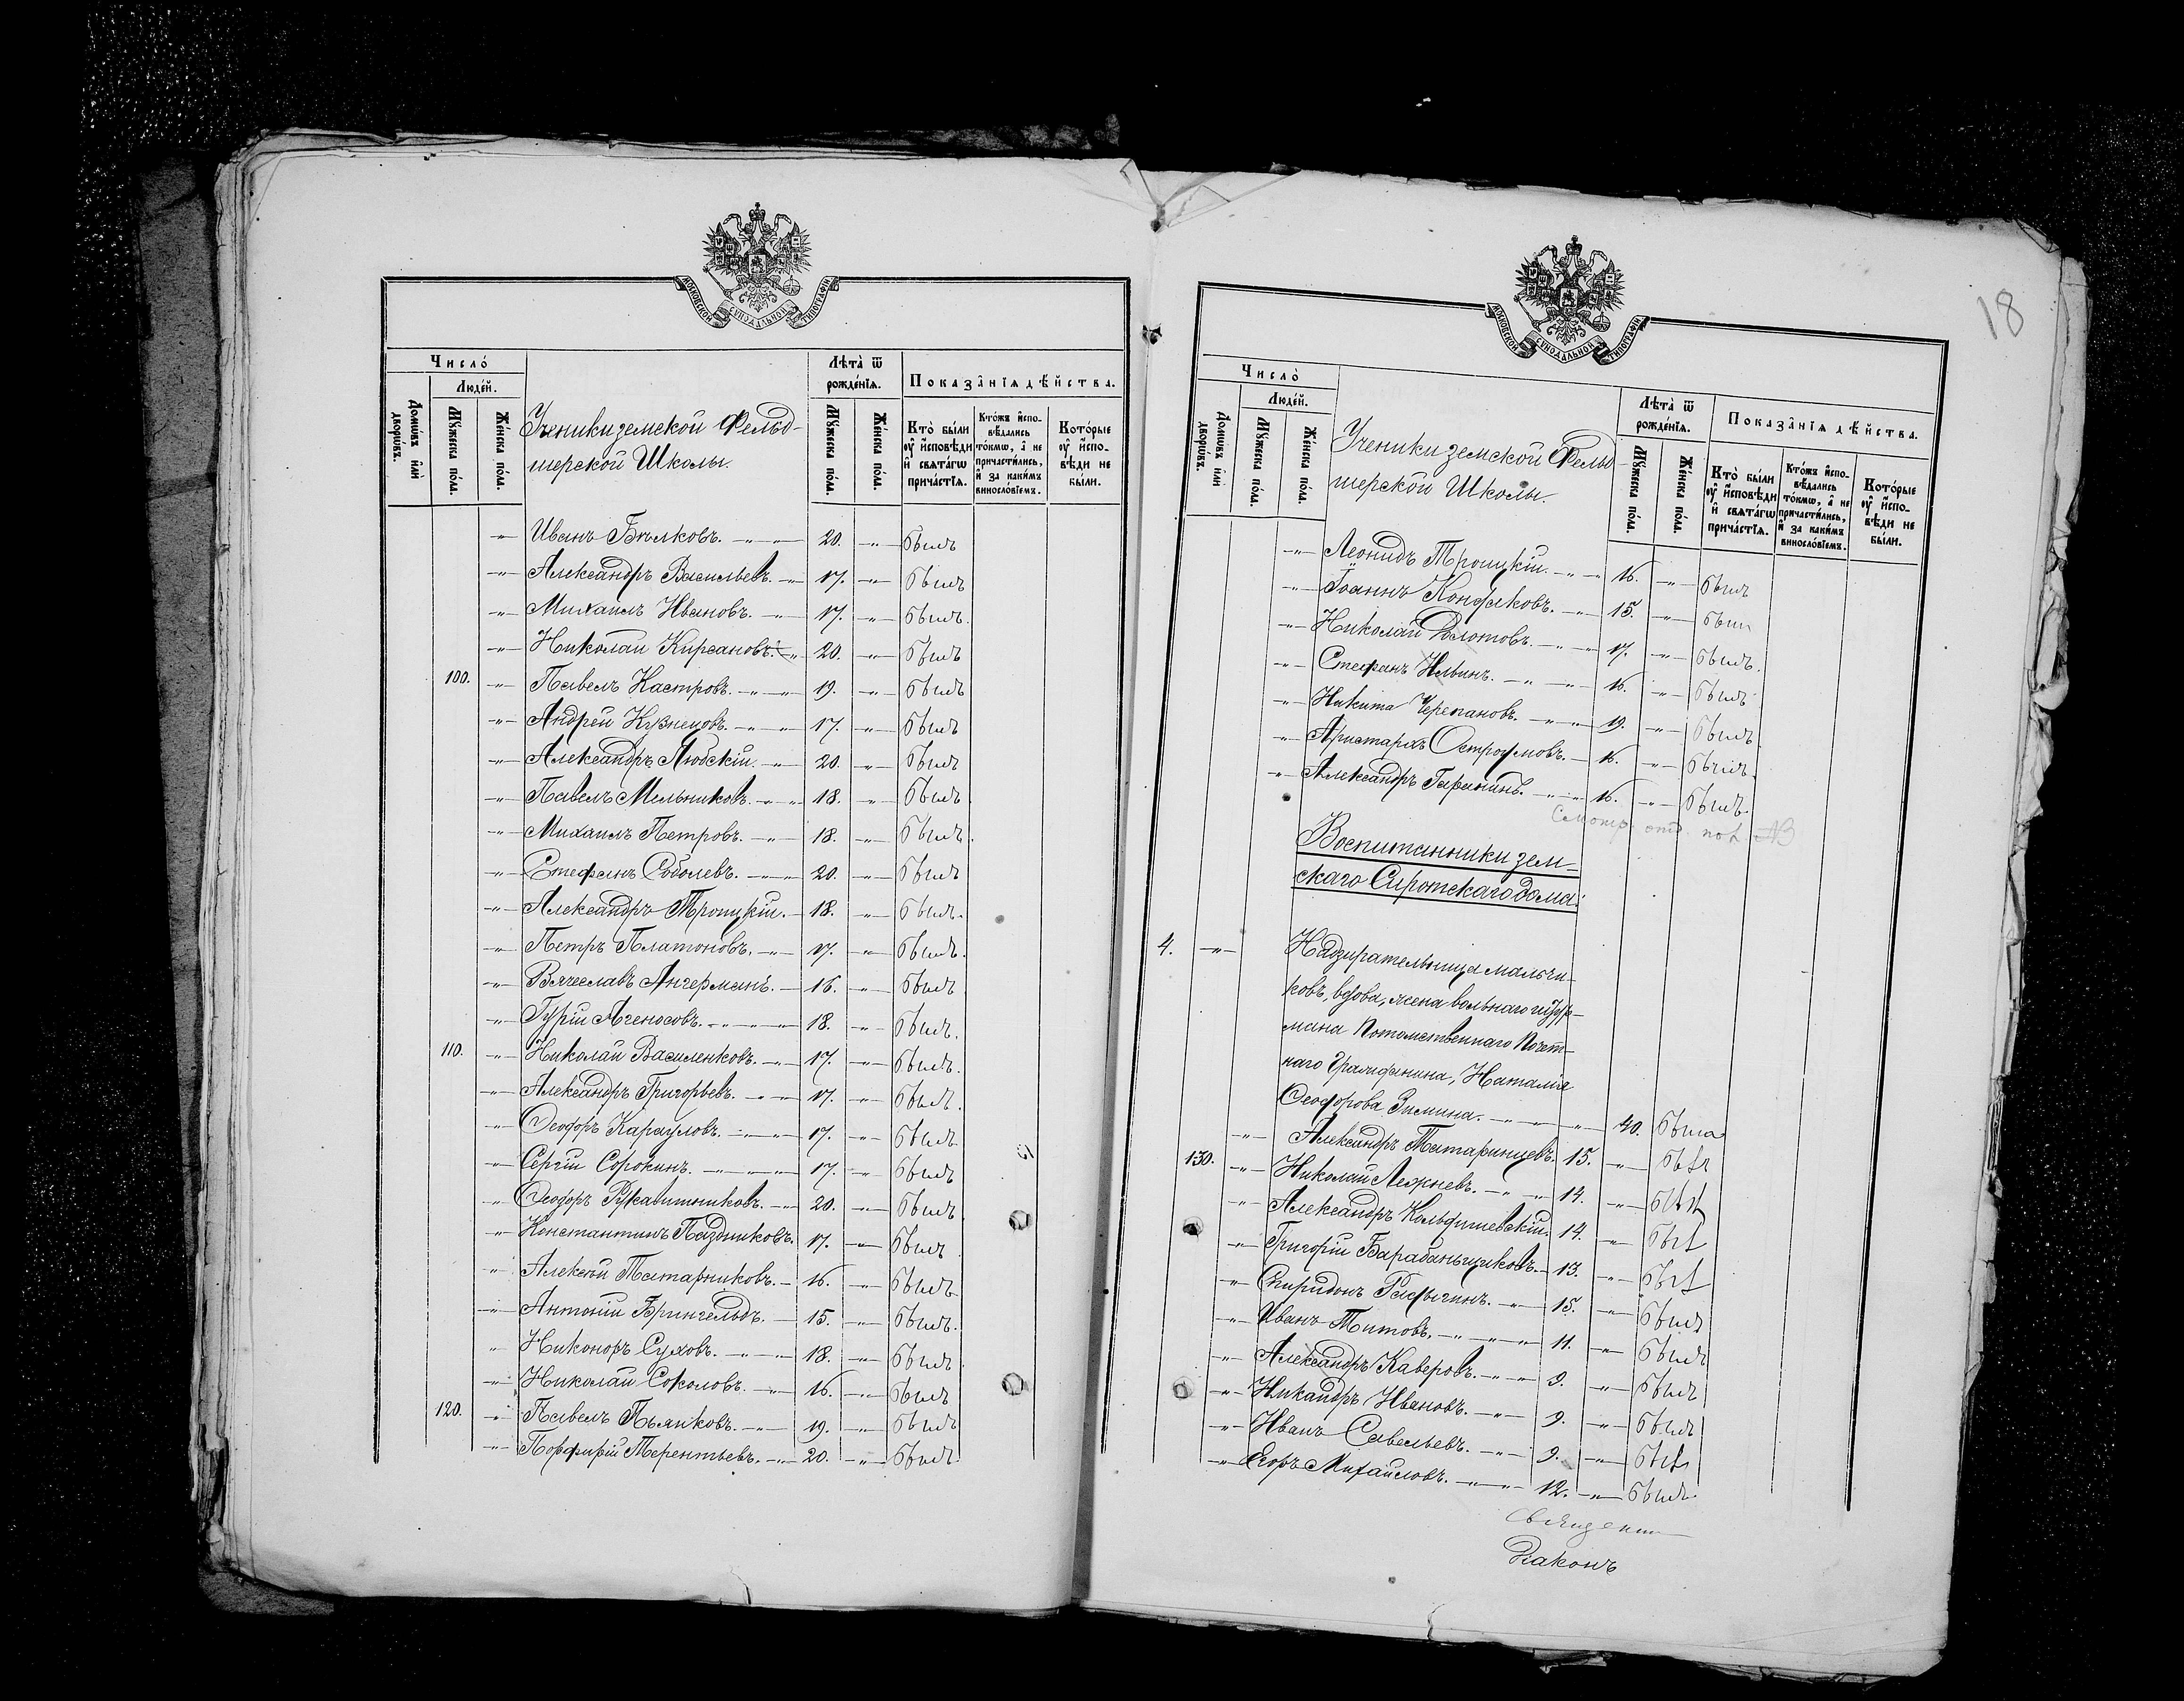 МОСКОВСКОЙ СУНОДАЛЬНОЙ ТИПОГРАФІИ
Число̀
Люде́й.
Домѡ́въ и҆лѝ дворѡ́въ.
Мꙋ́жеска по́ла.
Же́нска по́ла.
Ученики земской Фельд-
шерской Школы.
Лѣта̀ ѿ рожде́нїѧ.
Мꙋ́жеска по́ла.
Же́нска по́ла.
Показа̑нїѧ дѣ́йства.
Кто̀ бы́ли ᲂу҆ и҆сповѣ́ди и҆ свѧта́гѡ прича́стїѧ.
Кто́жъ и҆спо- вѣ́дались то́кмѡ, а҆ не причасти́лись, и҆ за каки́мъ винослові́емъ.
Кото́рые ᲂу҆ и҆спо- вѣ́ди не бы́ли.
-"- Иванъ Бѣлковъ. -"- 20. -"- былъ
-"- Александръ Васильевъ. -"- 17. -"- былъ
-"- Михаилъ Ивановъ. -"- 17. -"- былъ.
-"- Николай Кирсановъ. -"- 20. -"- былъ
100. -"- Павелъ Кастровъ. -"- 19. -"- былъ
-"- Андрей Кузнецовъ. -"- 17. -"- былъ
-"- Александръ Любскій. -"- 20. -"- былъ
-"- Павелъ Мельниковъ. -"- 18. -"- былъ
-"- Михаилъ Петровъ. -"- 18. -"- былъ.
-"- Стефанъ Соболевъ. -"- 20. -"- былъ
-"- Александръ Троицкій. - 18. -"- былъ.
-"- Петръ Платоновъ. -"- 17. -"- былъ.
-"- Вячеславъ Ангерманъ. - 16. -"- былъ
-"- Гурій Агеносовъ. -"- 18. -"- былъ.
110. -"- Николай Василенковъ. -"- 17. -"- былъ.
-"- Александръ Григорьевъ. -"- 17. -"- былъ.
-"- Ѳеодоръ Карауловъ. -"- 17. -"- былъ
-"- Сергій Сорокинъ. -"- 17. -"- былъ
-"- Ѳеодоръ Рукавишниковъ. -"- 20. -"- былъ
-"- Константинъ Паздниковъ. 17. -"- былъ
-"- Алексѣй Татарниковъ. - 16. -"- былъ
-"- Антоній Брингельдъ. - 15. -"- былъ.
-"- Никоноръ Суховъ. -"- 18. -"- былъ
-"- Николай Соколовъ. -"- 16. -"- былъ
120. -"- Павелъ Пьянковъ. -"- 19. -"- былъ
-"- Порфирій Терентьевъ. -"- 20. -"- былъ
18
МОСКОВСКОЙ СУНОДАЛЬНОЙ ТИПОГРАФІИ
Число̀
Люде́й.
Домѡ́въ и҆лѝ дворѡ́въ.
Мꙋ́жеска по́ла.
Же́нска по́ла.
Ученики земской Фельд-
шерской Школы.
Лѣта̀ ѿ рожде́нїѧ.
Мꙋ́жеска по́ла.
Же́нска по́ла.
Показа̑нїѧ дѣ́йства.
Кто̀ бы́ли ᲂу҆ и҆сповѣ́ди и҆ свѧта́гѡ прича́стїѧ.
Кто́жъ и҆спо- вѣ́дались то́кмѡ, а҆ не причасти́лись, и҆ за каки́мъ винослові́емъ.
Кото́рые ᲂу҆ и҆спо- вѣ́ди не бы́ли.
-"- Леонидъ Троицкій. -"- 16. -"- былъ
-"- Іоаннъ Кондаковъ. -"- 15. -"- былъ
-"- Николай Долотовъ. -"- 17. -"- былъ.
-"- Стефанъ Ильинъ. -"- 16. -"- былъ
-"- Никита Черепановъ. -"- 19. -"- былъ
-"- Аристархъ Остроумовъ. - 16. -"- былъ.
-"- Александръ Гаранинъ. -"- 16. -"- былъ.
Смотр.
Воспитанники зем-
скаго Сиротскаго дома:
4. -"- Надзирательница мальчи-
ковъ, вдова, жена вольнаго штур-
мана Потомственнаго Почет-
наго Гражданина, Наталія
Ѳеодорова Зимина. -"- 40. была
-"- Александръ Татаринцевъ. 15. -"- былъ
130. -"- Николай Лежневъ. -"- 14. -"- былъ
-"- Александръ Кольфишевскій. 14. -"- былъ
-"- Григорій Барабаньщиковъ. - 13. -"- былъ
-"- Спиридонъ Радыгинъ. -"- 15. -"- былъ
-"- Иванъ Титовъ. -"- 11. -"- былъ
-"- Александръ Каверовъ. -"- 9. -"- былъ
-"- Никандръ Ивановъ. -"- 9. -"- былъ
-"- Иванъ Савельевъ. -"- 9. -"- былъ
-"- Егоръ Михайловъ. -"- 12. -"- былъ.
Священн
Діаконъ